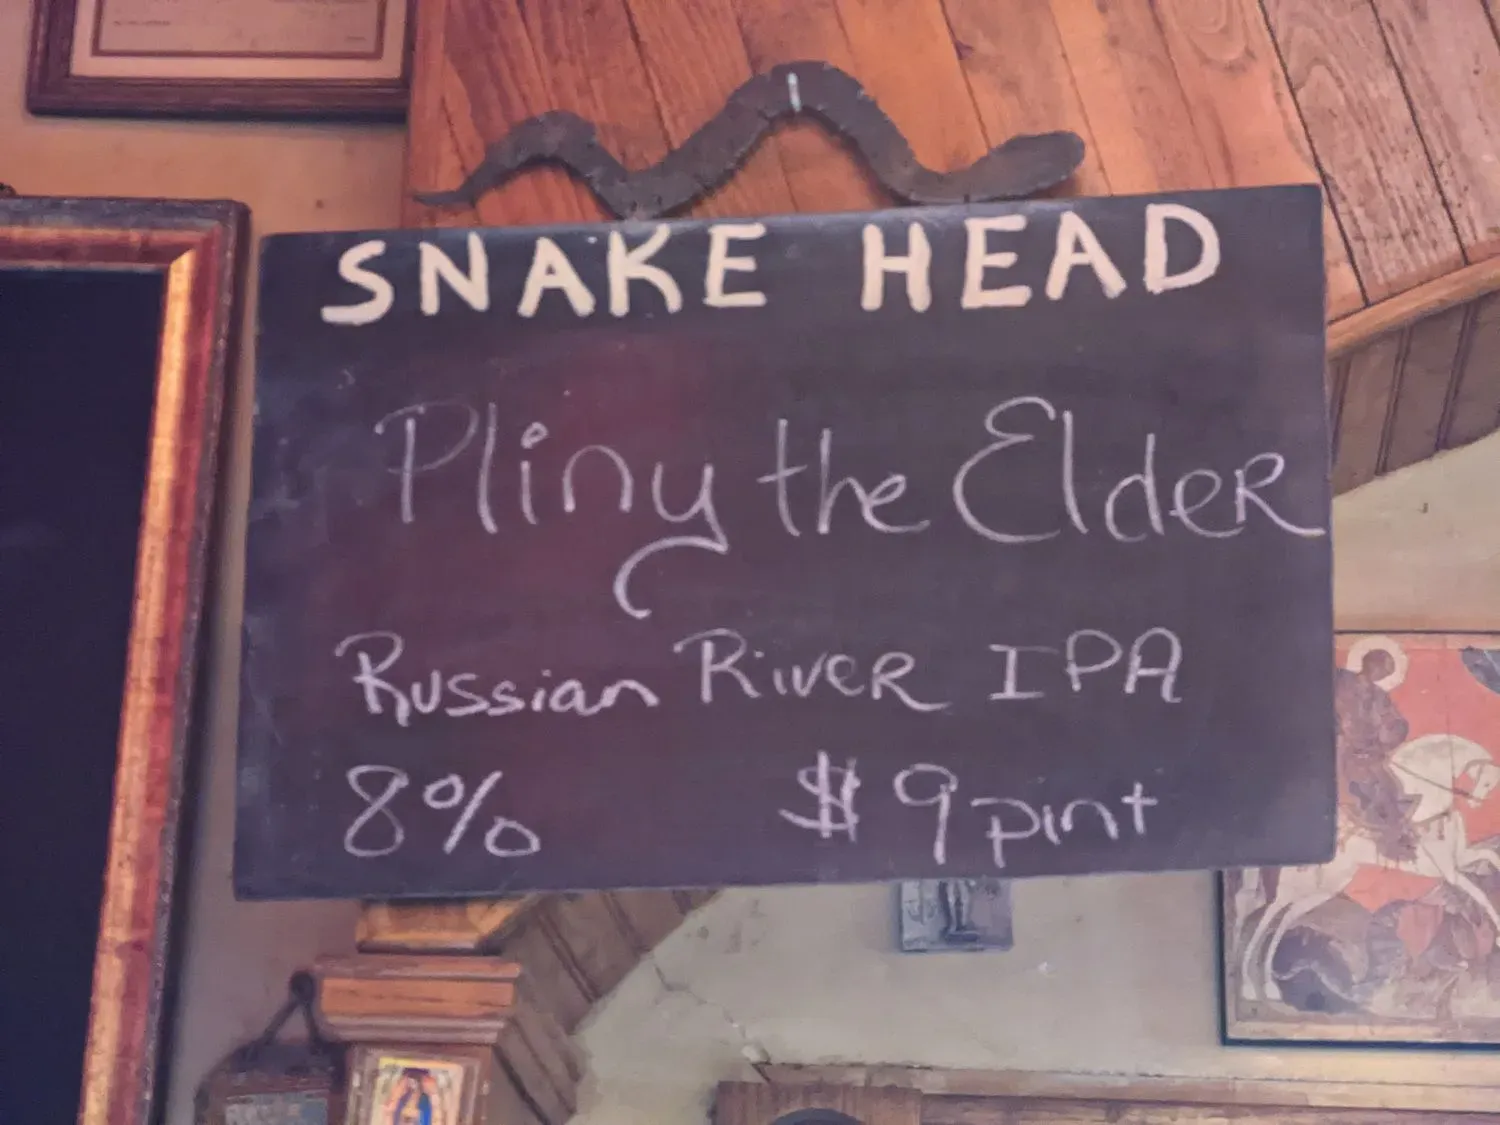 SNAKE HEAD
Pliny the Elder
Russian River IPA
8% $9 pint